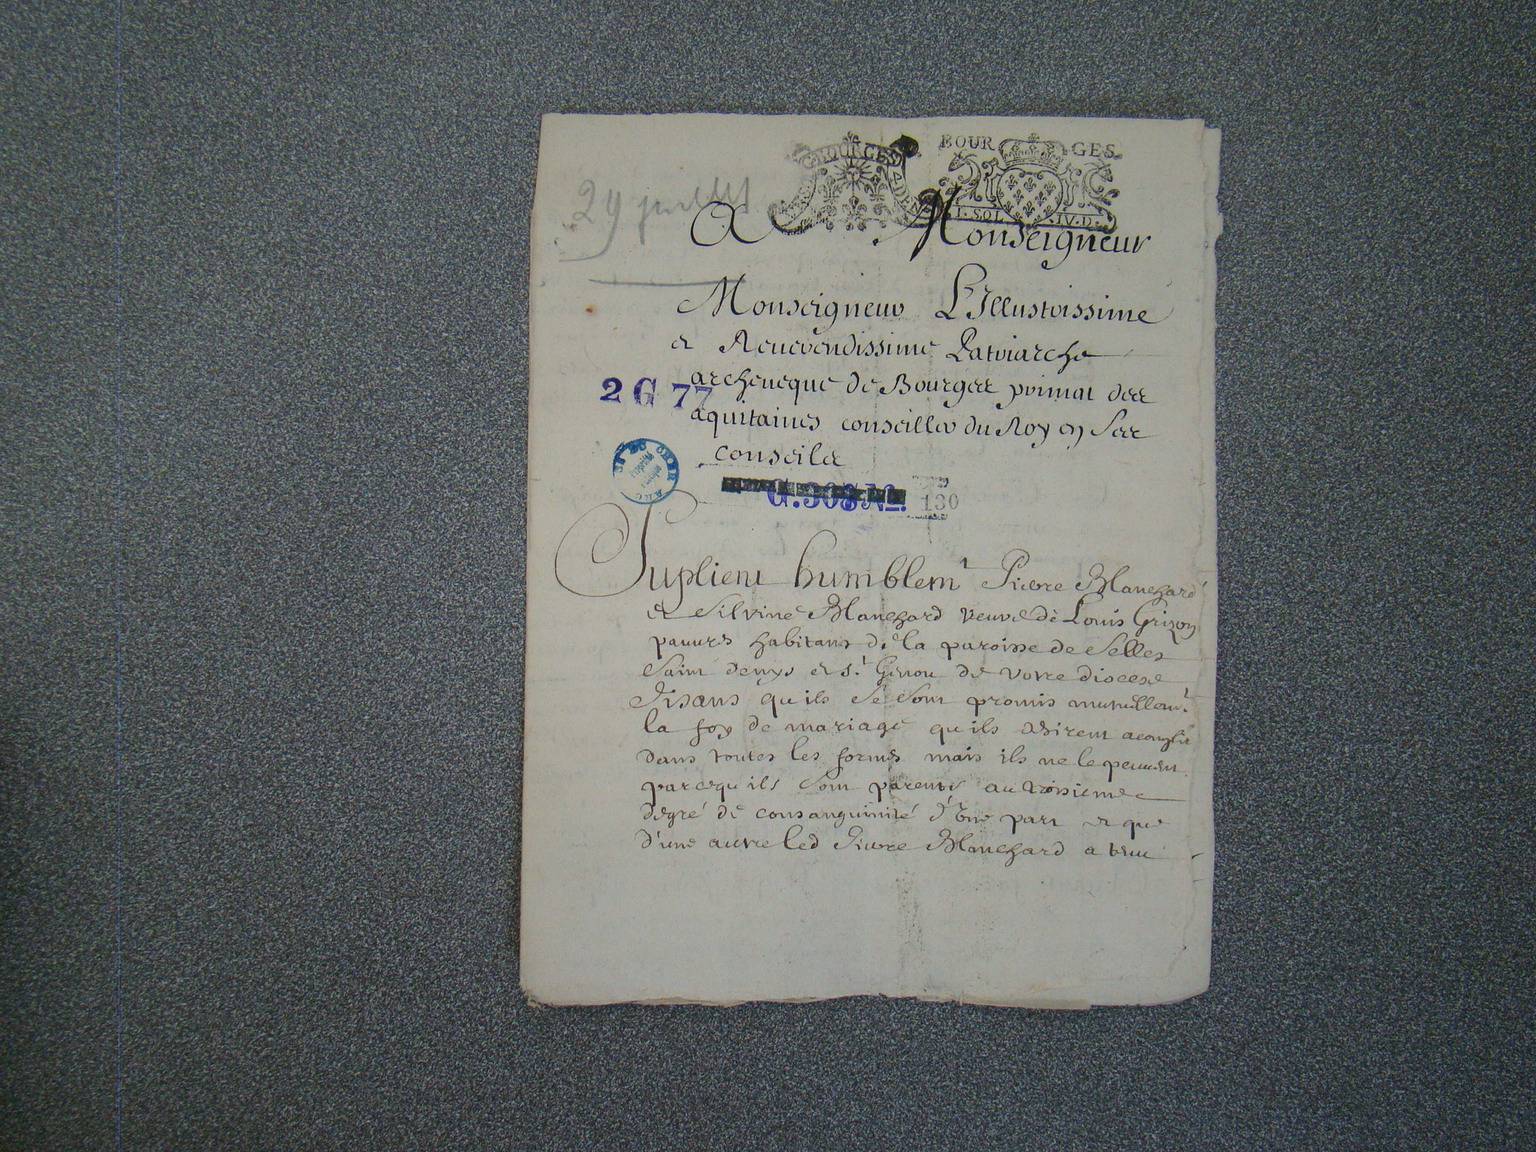 BOURGES
BOUR GES
I. SOL IV. D.
29 juillet
A Monseigneur
Monseigneur L'Illustrissime
et Reverendissime Patriarche
archeveque de Bourges primat des
aquitaines conseiller du Roy en ses
conseils
2 G 77
G. 308 No. 130
Suplient humblemt Pierre Blanchard
et Silvine Blanchard veuve de Louis Grizon
pauvres habitans de la paroisse de Selles
Saint denys et St. Genou de votre diocese
disans qu ils se sont promis mutuellemt
la foy de mariage qu ils desirent acomplir
dans toutes les formes mais ils ne le peuvent
parcequ ils sont parents au troisieme
degré de consanguinité d'une part et que
d'une autre led Pierre Blanchard a tenu